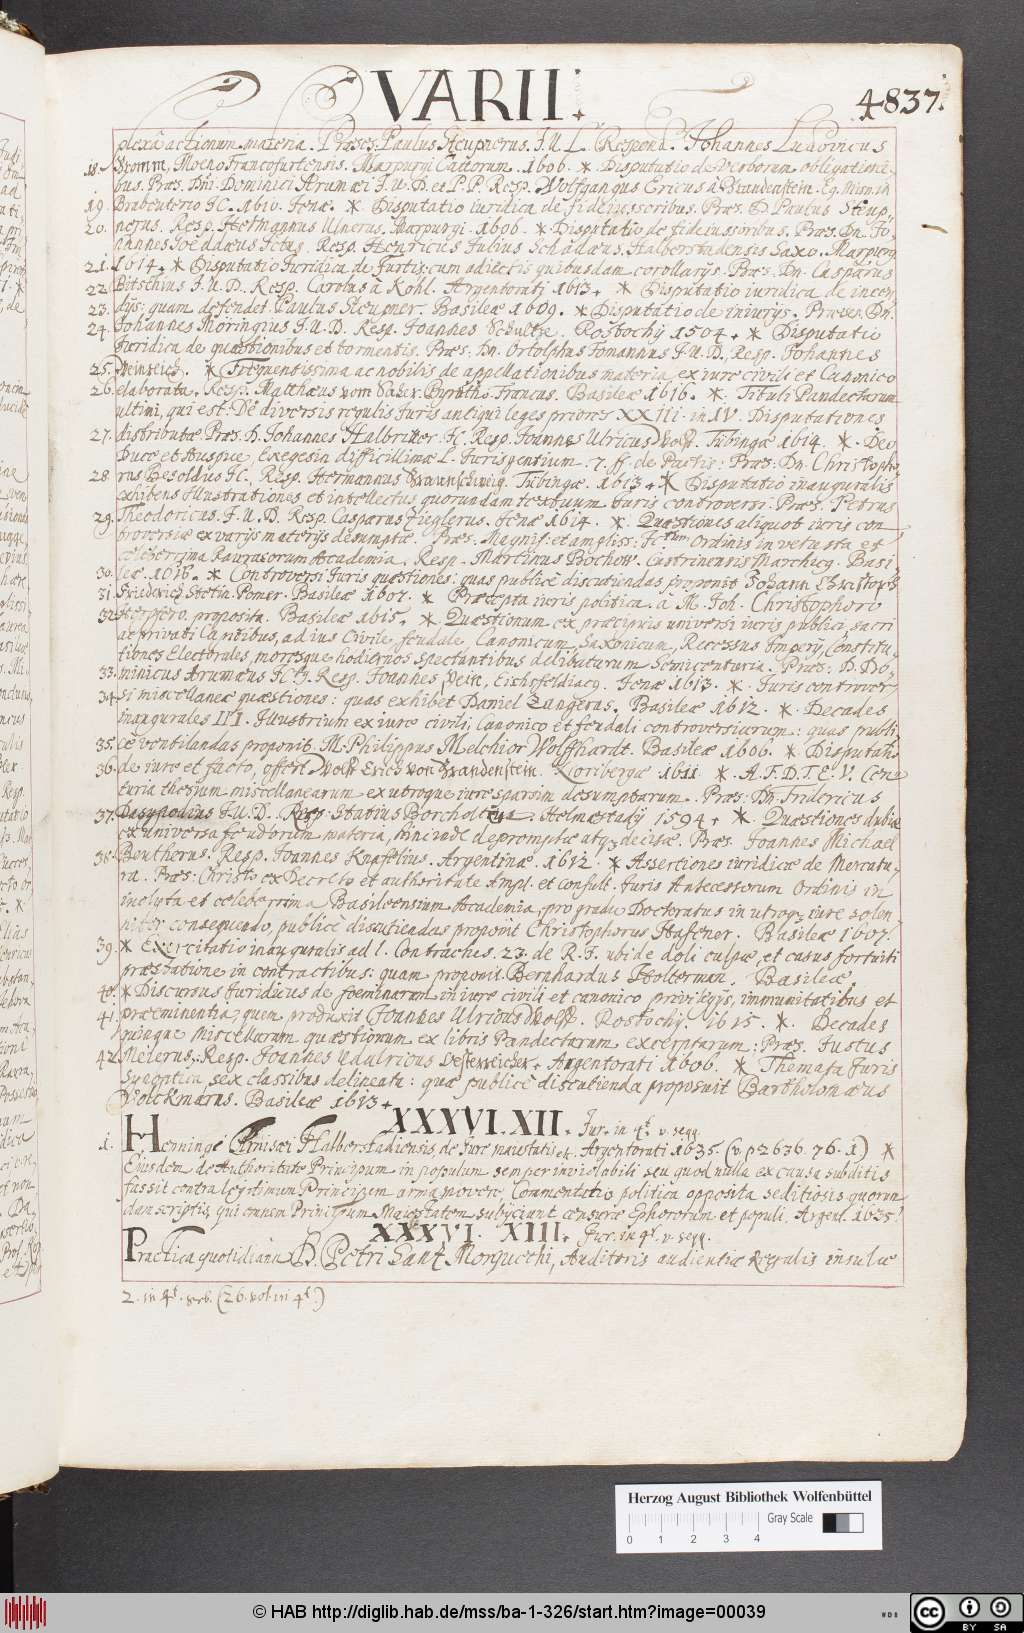 VARII.
4837.
plexâ actionum materia. Præses. Paulus Steupnerus. J. U. L. Respond. Johannes Ludovicus
18. Stromm, Moeno Francofurtensis. Marpurgi Cattorum. 1606. * Disputatio de Verborum obligationi-
bus. Præs. Dn. Dominici Arumæi J. U. D. et P. P. Resp. Wolfgangus Ericus à Brandenstein. Eq. Misn. in
19. Brabeuterio JC. 1610. Jenæ. * Disputatio iuridica de fideiussoribus. Præs. D. Paulus Steup-
20. nerus. Resp. Hermannus Ulnerus. Marpurgi. 1606. * Disputatio de fideiussoribus. Præs. Dn. Jo-
hannes Goeddæus Jctus. Resp. Henricus Julius Schadæus, Halberstadensis Saxo. Marpurgi
21. 1614. * Disputatio Juridica de Furtis, cum adiectis quibusdam corollarijs. Præs. Dn. Casparus
22. Bitschius J. U. D. Resp. Carolus à Kohl. Argentorati 1613. * Disputatio iuridica de incen-
23. dijs: quam defendet Paulus Steupner. Basileæ 1609. * Disputatio de iniurijs. Præses. Dn.
24. Johannes Moringius J. U. D. Resp. Joannes Schultze. Rostochij 1504. * Disputatio
Juridica de quæstionibus et tormentis. Præs: Dn. Ortolphus Fomannus J. U. D. Resp. Johannes
25. Weinreich. * Frequentissima ac nobilis de appellationibus materia, ex iure civili et Canonico
26. elaborata. Resp. Matthæus vom Saher. Byruth. Francus. Basileæ 1616. * Tituli Pandectarum
ultimi, qui est: De diversis regulis Juris antiqui leges priores XXIII. in IV. Disputationes
27. distributæ Præs. D. Johannes Halbritter JC. Resp. Joannes Ulricus Wolff. Tübingæ 1614. * Deo
Duce et Auspice, Exegesin difficillimæ L. Jurisgentium. 7. ff. de Pactis: Præs: Dn. Christopho-
28. rus Besoldus JC. Resp. Hermannus Fravenschweig. Tübingæ. 1613. * Disputatio inauguralis
exhibens illustrationes et intellectus quorundam textuum iuris controversi. Præs. Petrus
29. Theodoricus. J. U. D. Resp. Casparus Zieglerus. Jenæ 1614. * Quæstiones aliquot iuris con-
troversiæ ex varijs materijs desumptæ. Præs. Magnif. et ampliss: JCtorum Ordinis in vetusta et
celeberrima Rauracorum Academia. Resp. Martinus Bochow. Custrinensis Marchecq. Basi-
30. leæ. 1616. * Controversi Juris quæstiones: quas publicè discutiendas proponit Johann Christoph
31. Friederich Stetin. Pomer. Basileæ 1607. * Præcepta iuris politica. à M. Joh. Christophoro
32. Herpfero. proposita. Basileæ 1615. * Quæstionum ex præcipuis universi iuris publici, sacri
ac privati Capitibus, ad ius Civile, feudale, Canonicum, Saxonicum, Recessus Imperij, Constitu-
tiones Electorales, moresque hodiernos spectantibus delibatarum Semicenturia. Præs: D. Do-
33. minicus Arumæus JC. Resp. Joannes Pein, Eichsfeldiacq. Jenæ 1613. * Juris controver-
34. si miscellaneæ quæstiones: quas exhibet Daniel Zangerus. Basileæ 1612. * Decades
inaugurales III. Illustrium ex iure civili, Canonico et feudali controversiarum: quas publi-
35. cè ventilandas proponit. M. Philippus Melchior Wolffhardt. Basileæ 1606. * Disputatio
36. de iure et facto, offert Wolff Erich von Brandenstein. Noribergæ 1611 * A. F. D. T. E. V. Cen-
turia thesium miscellanearum ex utroque iure sparsim desumptarum. Præs: Dn. Fridericus
37. Dasypodius J. U. D. Resp. Statius Borcholten. Helmæstadij 1594. * Quæstiones dubiæ
ex universa feudorum materia, hinc inde depromptæ atq; decisæ. Præs. Joannes Michael
38. Beutherus. Resp. Joannes Knafelius. Argentinæ. 1612 * Assertiones iuridicæ de Mercatu-
ra. Præs: Christo ex Decreto et authoritate Ampl. et Consult. Juris Antecessorum Ordinis in
inclyta et celeberrima Basileensium Academia, pro gradu Doctoratus in utroq; iure solen-
niter consequendo, publicè discutiendas proponit Christophorus Hafener. Basileæ 1607.
39. * Exercitatio inauguralis ad l. Contractus. 23. de R. J. ubi de doli culpæ, et casus fortuiti
præstatione in contractibus: quam proponit Bernhardus Holterman. Basileæ.
40. * Discursus Juridicus de foeminarum in iure civili et canonico privilegijs, immunitatibus et
41. præeminentia, quem produxit Joannes Ulricus Wolff. Rostochij. 1615. * Decades
quinque Miscellarum quæstionum ex libris Pandectarum excerptarum: Præs. Justus
42. Meierus. Resp. Joannes Udalricus Oesterreicher. Argentorati 1606. * Themata Juris
Synoptica, sex classibus delineata: quæ publicè discutienda proposuit Bartholomæus
Volckmarus. Basileæ 1613.
XXXVI. XII. Jur. in 4t. v. seqq.
1. Henningi Arnisæi Halberstadiensis, de Jure maiestatis etc. Argentorati 1635. (v. p 2636. 76. 1) *
Eiusdem de Authoritate Principum in populum semper inviolabili seu quod nulla ex causa subditis
fas sit contra legitimum Principem arma movere, Commentatio politica opposita seditiosis quorun-
dam scriptis, qui omnem Principum Maiestatem subijciunt censuræ Ephororum et populi. Argent. 1635.
XXXVI. XIII. Jur. in 4t. v. seqq.
Practica quotidiana D. Petri Sant Morquechi, Auditoris audientiæ Regalis insulæ
2. in 4t. (26. vol. in 4t.)
Herzog August Bibliothek Wolfenbüttel
Gray Scale
0 1 2 3 4
© HAB http://diglib.hab.de/mss/ba-1-326/start.htm?image=00039
WDB
cc BY SA